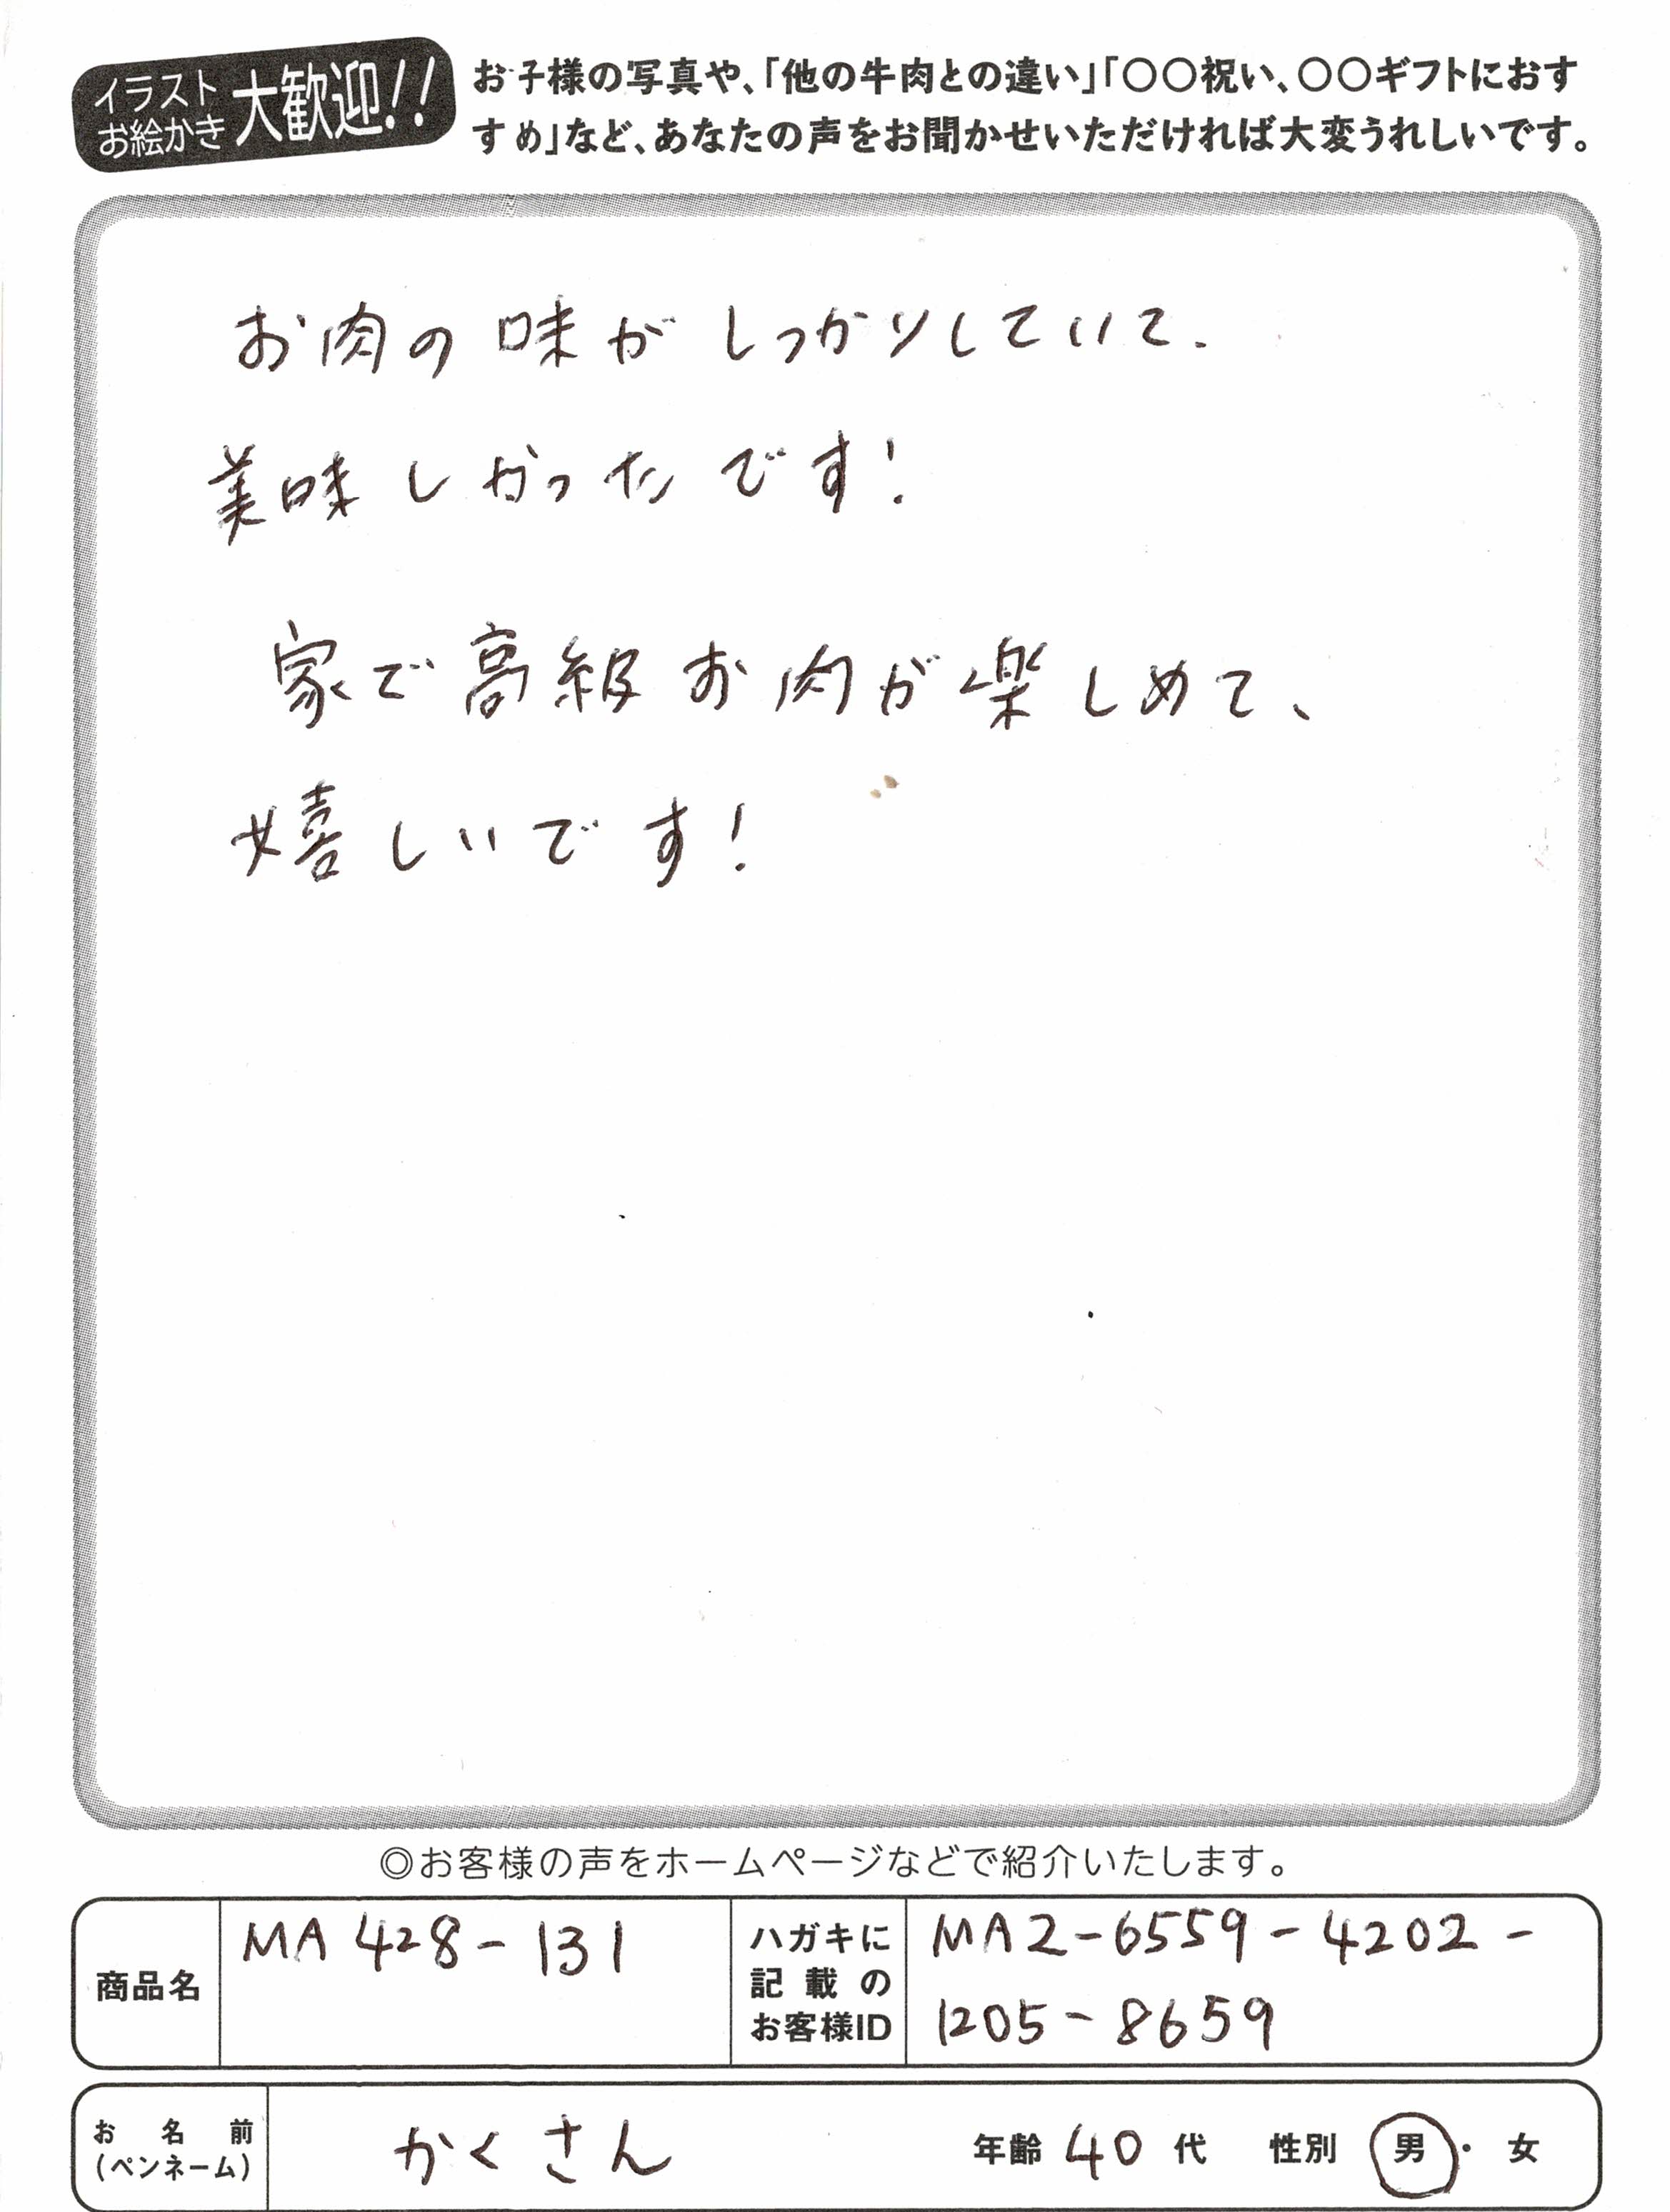 イラスト
お絵かき
大歓迎!!
お子様の写真や、「他の牛肉との違い」「〇〇祝い、〇〇ギフトにおす
すめ」など、あなたの声をお聞かせいただければ大変うれしいです。
お肉の味がしっかりしていて、
美味しかったです!
家で高級お肉が楽しめて、
嬉しいです!
◎お客様の声をホームページなどで紹介いたします。
商品名
MA428-131
ハガキに
記載の
お客様ID
MA2-6559-4202-
1205-8659
お名前
(ペンネーム)
かくさん
年齢 40 代 性別 男・女